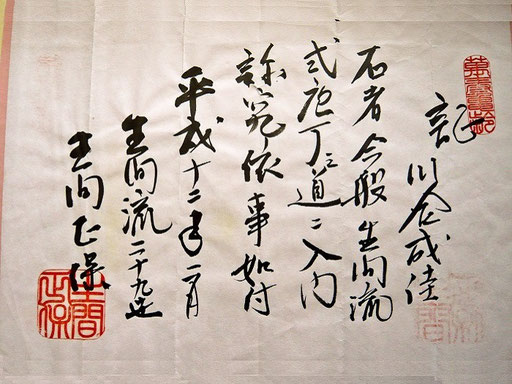 記
川合成佳
右者今般生間流
式庖丁之道ニ入門
許容依事如件
平成十二年一月
生間流二十九世
生間正保